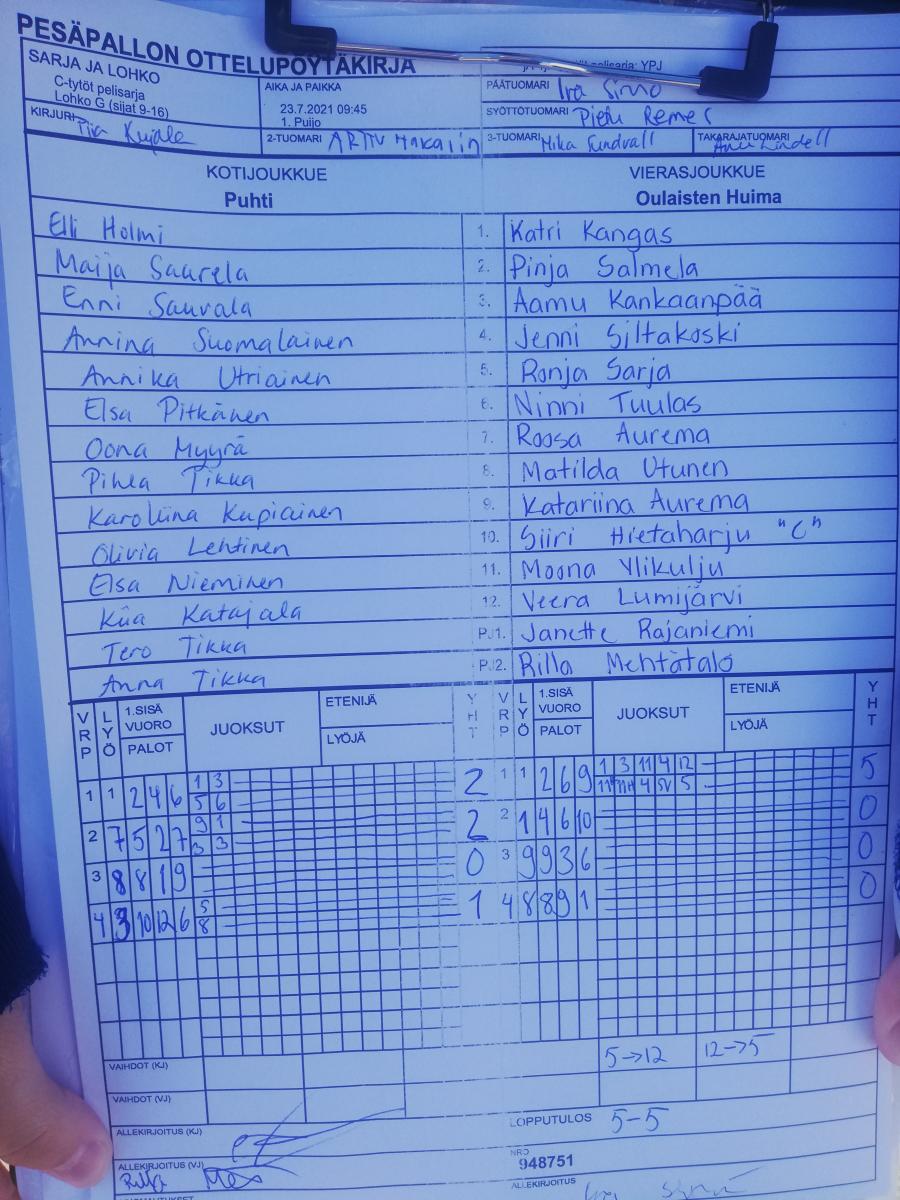 PESÄPALLON OTTELUPÖYTÄKIRJA
SARJA JA LOHKO
C-tytöt pelisarja
Lohko G (sijat 9-16)
AIKA JA PAIKKA
23.7.2021 09:45
1. Puijo
pelisarja: YPJ
PÄÄTUOMARI
SYÖTTÖTUOMARI Remes
KIRJURI Piia Kujala
2-TUOMARI ARTTU
3-TUOMARI Mika Sundvall
TAKARAJATUOMARI
KOTIJOUKKUE VIERASJOUKKUE
Puhti Oulaisten Huima
Elli Holmi 1. Katri Kangas
Maija Saarela 2. Pinja Salmela
Enni Sauvala 3. Aamu Kankaanpää
Annina Suomalainen 4. Jenni Siltakoski
Annika Utriainen 5. Ronja Sarja
Elsa Pitkänen 6. Ninni Tuulas
Oona Myyrä 7. Roosa Aurema
Pihla Tikka 8. Matilda Utunen
Karoliina Kupiainen 9. Katariina Aurema
Olivia Lehtinen 10. Siiri Hietaharju "C"
Elsa Nieminen 11. Moona Ylikulju
Kiia Katajala 12. Veera Lumijärvi
Tero Tikka PJ1. Janette Rajaniemi
Anna Tikka PJ2. Rilla Mehtätalo
VRP LYÖ 1.SISÄ VUORO PALOT JUOKSUT ETENIJÄ LYÖJÄ YHT VRP LYÖ 1.SISÄ VUORO PALOT JUOKSUT ETENIJÄ LYÖJÄ YHT
1 1 2 4 6 1 3 2 1 1 2 6 9 1 3 11 4 12 5
5 6 11 4 5
2 7 5 2 7 9 1 2 2 1 4 6 10 0
3 3
3 8 8 1 9 0 3 9 9 3 6 0
4 3 10 12 6 5 1 4 8 8 9 1 0
8
VAIHDOT (KJ) 5→12 12→5
VAIHDOT (VJ)
ALLEKIRJOITUS (KJ) LOPPUTULOS 5-5
ALLEKIRJOITUS (VJ) NRO
948751
ALLEKIRJOITUS